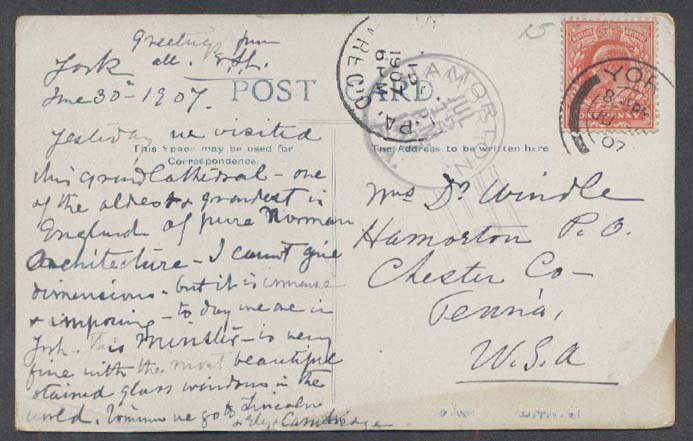 Greetings from
all.
York
June 30th 1907.
POST CARD.
This Space may be used for
Correspondence.
The Address to be written here
Yesterday we visited
this grand Cathedral - one
of the oldest & grandest in
England of pure Norman
Architecture - I cannot give
dimensions - but it is immense
& imposing - to day we are in
York. This Minster - is very
fine with the most beautiful
stained glass windows in the
world. we go to Lincoln
& Ely & Cambridge
Mrs Dr Windle
Hamorton P. O.
Chester Co -
Penna,
U.S.A
15
HAMORTON
PA.
1907
6 PM
YORK
07